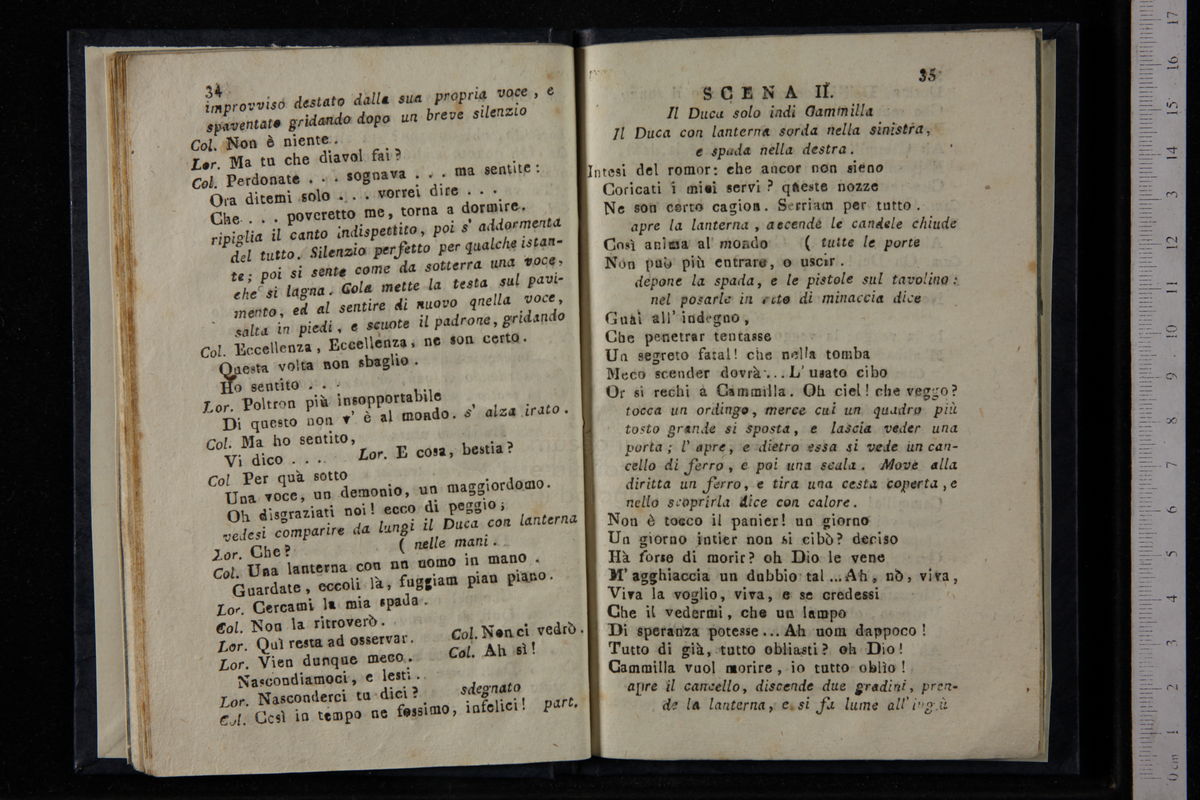 34
improvviso destato dalla sua propria voce, e
spaventato gridando dopo un breve silenzio
Col. Non è niente.
Lor. Ma tu che diavol fai?
Col. Perdonate . . . sognava . . . ma sentite:
Ora ditemi solo . . . vorrei dire . . .
Che . . . poveretto me, torna a dormire.
ripiglia il canto indispettito, poi s' addormenta
del tutto. Silenzio perfetto per qualche istan-
te; poi si sente come da sotterra una voce,
che si lagna. Cola mette la testa sul pavi-
mento, ed al sentire di nuovo qnella voce,
salta in piedi, e scuote il padrone, gridando
Col. Eccellenza, Eccellenza, ne son certo.
Questa volta non sbaglio.
Ho sentito . . .
Lor. Poltron più insopportabile
Di questo non v' è al mondo. s' alza irato.
Col. Ma ho sentito,
Vi dico . . . . Lor. E cosa, bestia?
Col Per quà sotto
Una voce, un demonio, un maggiordomo.
Oh disgraziati noi! ecco di peggio;
vedesi comparire da lungi il Duca con lanterna
Lor. Che? ( nelle mani.
Col. Una lanterna con nn uomo in mano.
Guardate, eccoli là, fuggiam pian piano.
Lor. Cercami la mia spada.
Col. Non la ritroverò.
Lor. Quì resta ad osservar. Col. Non ci vedrò.
Lor. Vien dunque meco. Col. Ah sì!
Nascondiamoci, e lesti.
Lor. Nasconderci tu dici? sdegnato
Col. Così in tempo ne fossimo, infelici! part.
35
SCENA II.
Il Duca solo indi Cammilla
Il Duca con lanterna sorda nella sinistra,
e spada nella destra.
Intesi del romor: che ancor non sieno
Coricati i miei servi? queste nozze
Ne son certo cagion. Serriam per tutto.
apre la lanterna, accende le candele chiude
Così anima al mondo ( tutte le porte
Non può più entrare, o uscir.
depone la spada, e le pistole sul tavolino:
nel posarle in atto di minaccia dice
Guai all' indegno,
Che penetrar tentasse
Un segreto fatal! che nella tomba
Meco scender dovrà... L' usato cibo
Or si rechi a Cammilla. Oh ciel! che veggo?
tocca un ordingo, merce cui un quadro più
tosto grande si sposta, e lascia veder una
porta; l' apre, e dietro essa si vede un can-
cello di ferro, e poi una scala. Move alla
diritta un ferro, e tira una cesta coperta, e
nello scoprirla dice con calore.
Non è tocco il panier! un giorno
Un giorno intier non si cibò? deciso
Hà forse di morir? oh Dio le vene
M' agghiaccia un dubbio tal... Ah, nò, viva,
Viva la voglio, viva, e se credessi
Che il vedermi, che un lampo
Di speranza potesse... Ah uom dappoco!
Tutto di già, tutto obliasti? oh Dio!
Cammilla vuol morire, io tutto oblìo!
apre il cancello, discende due gradini, pren-
de la lanterna, e si fa lume all' ingiù